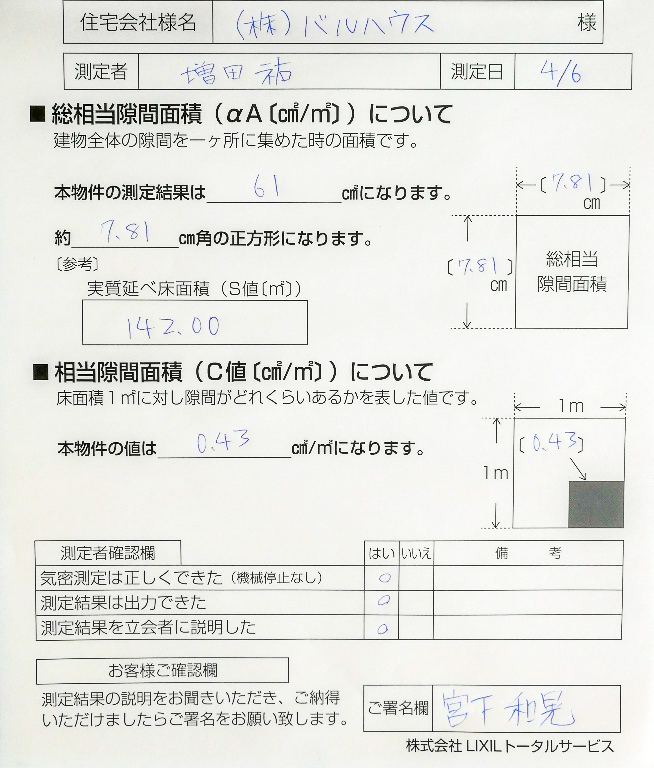 住宅会社様名 (株)バルハウス 様
測定者 増田 祐 測定日 4/6
■ 総相当隙間面積（αA〔c㎡/㎡〕）について
建物全体の隙間を一ヶ所に集めた時の面積です。
本物件の測定結果は 61 c㎡になります。
約 7.81 cm角の正方形になります。
〔参考〕
実質延べ床面積（S値〔㎡〕）
142.00
〔7.81〕
cm
〔7.81〕
cm
総相当
隙間面積
■ 相当隙間面積（C値〔c㎡/㎡〕）について
床面積1㎡に対し隙間がどれくらいあるかを表した値です。
本物件の値は 0.43 c㎡/㎡になります。
1m
1m
〔0.43〕
測定者確認欄 はい いいえ 備考
気密測定は正しくできた（機械停止なし） ○
測定結果は出力できた ○
測定結果を立会者に説明した ○
お客様ご確認欄
測定結果の説明をお聞きいただき、ご納得
いただけましたらご署名をお願い致します。
ご署名欄 宮下 和晃
株式会社 LIXILトータルサービス